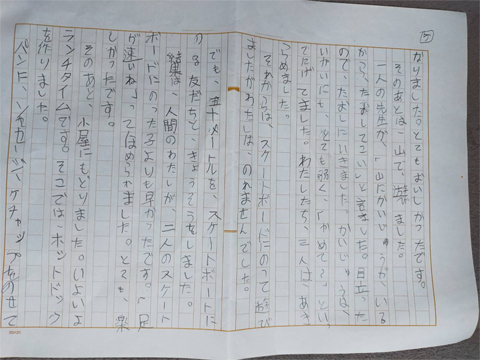 5
がりました。とてもおいしかったです。
そのあとは、山で、遊びました。
一人の先生が、「山にかいじゅうが、いる
から、たおしてこい」と言いました。
ので、たおしにいきました。かいじゅうは、
いがいにも、とても弱く「やめて〜」とい
てにげてました。わたしたち、三人は、あき
らめました。
それからは、スケートボードにのって遊び
ましたがわたしは、のれませんでした。
でも、五十メートルを、スケートボードに
のる友だちと、きょうそうをしました。
結果は、人間のわたしが、二人のスケート
ボードにのった子よりも早かったです。「足
が速いね」ってほめられました。とても、楽
しかったです。
そのあと、小屋にもどりました。いよいよ
ランチタイムです。そこでは、ホットドック
を作りました。
パンに、ソーセージ、ケチャップをのせて